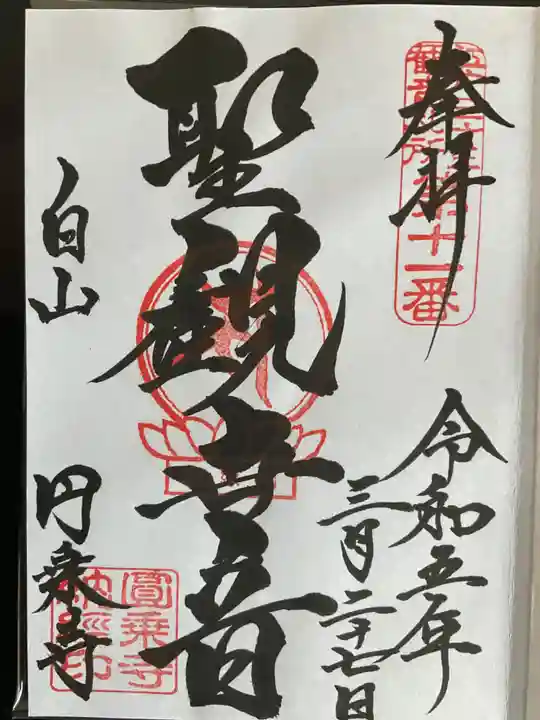 奉拝
第十一番
令和五年
三月二十七日
聖観世音
白山
円乗寺
圓乗寺
納経印